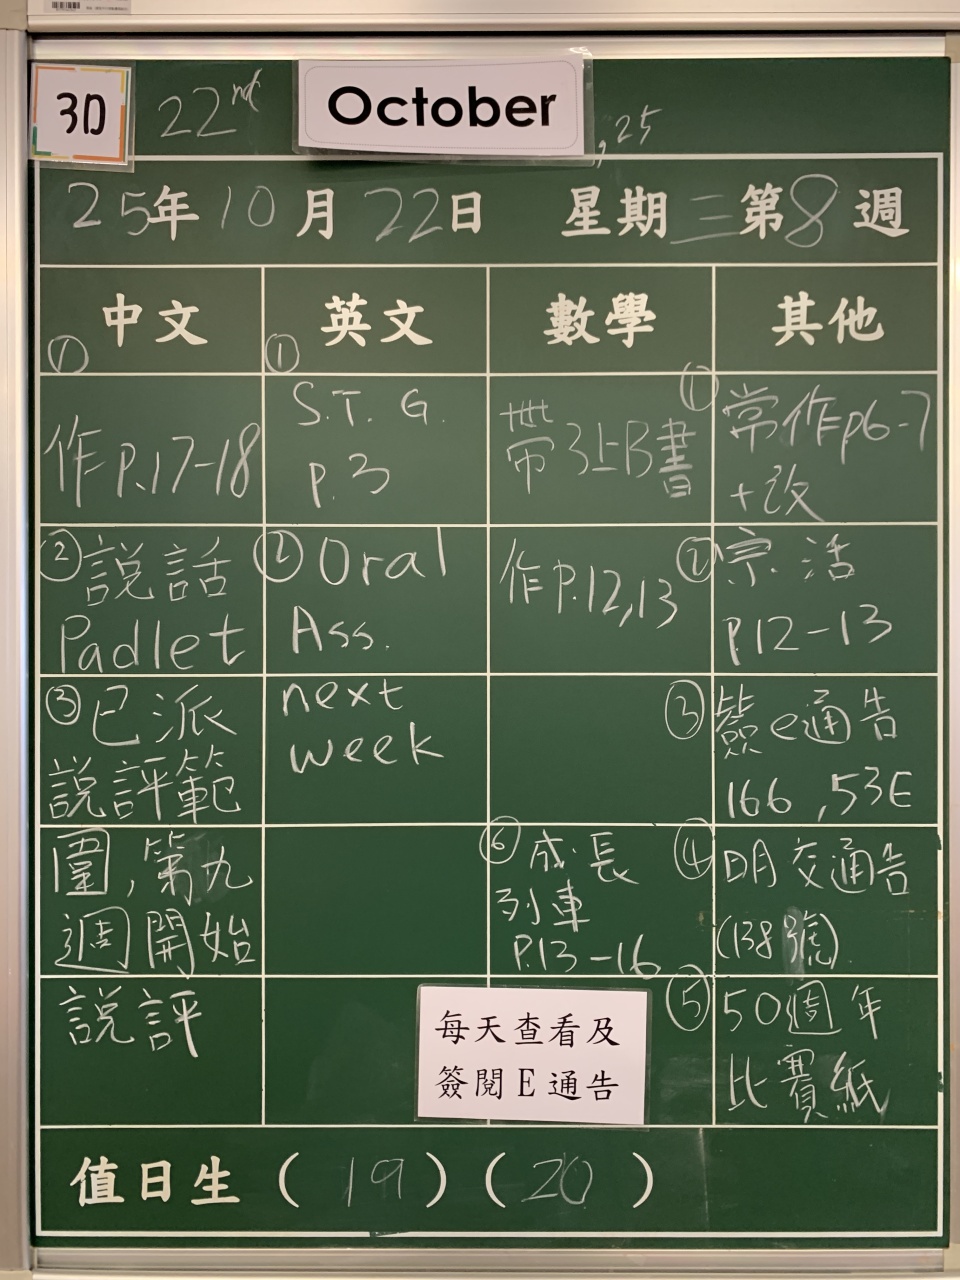 3D
22nd October, 25
25年10月22日 星期三第8週
中文 英文 數學 其他
①
作P.17-18
②說話
Padlet
③已派
說評範
圍,第九
週開始
說評
①
S.T.G.
p.3
②Oral
Ass.
next
week
帶3上B書
作P.12,13
①常作p6-7
+改
②宗活
P.12-13
③簽e通告
166,53E
④明交通告
(138號)
⑤50週年
比賽紙
⑥成長
列車
P.13-16
每天查看及
簽閱E通告
值日生(19)(20)